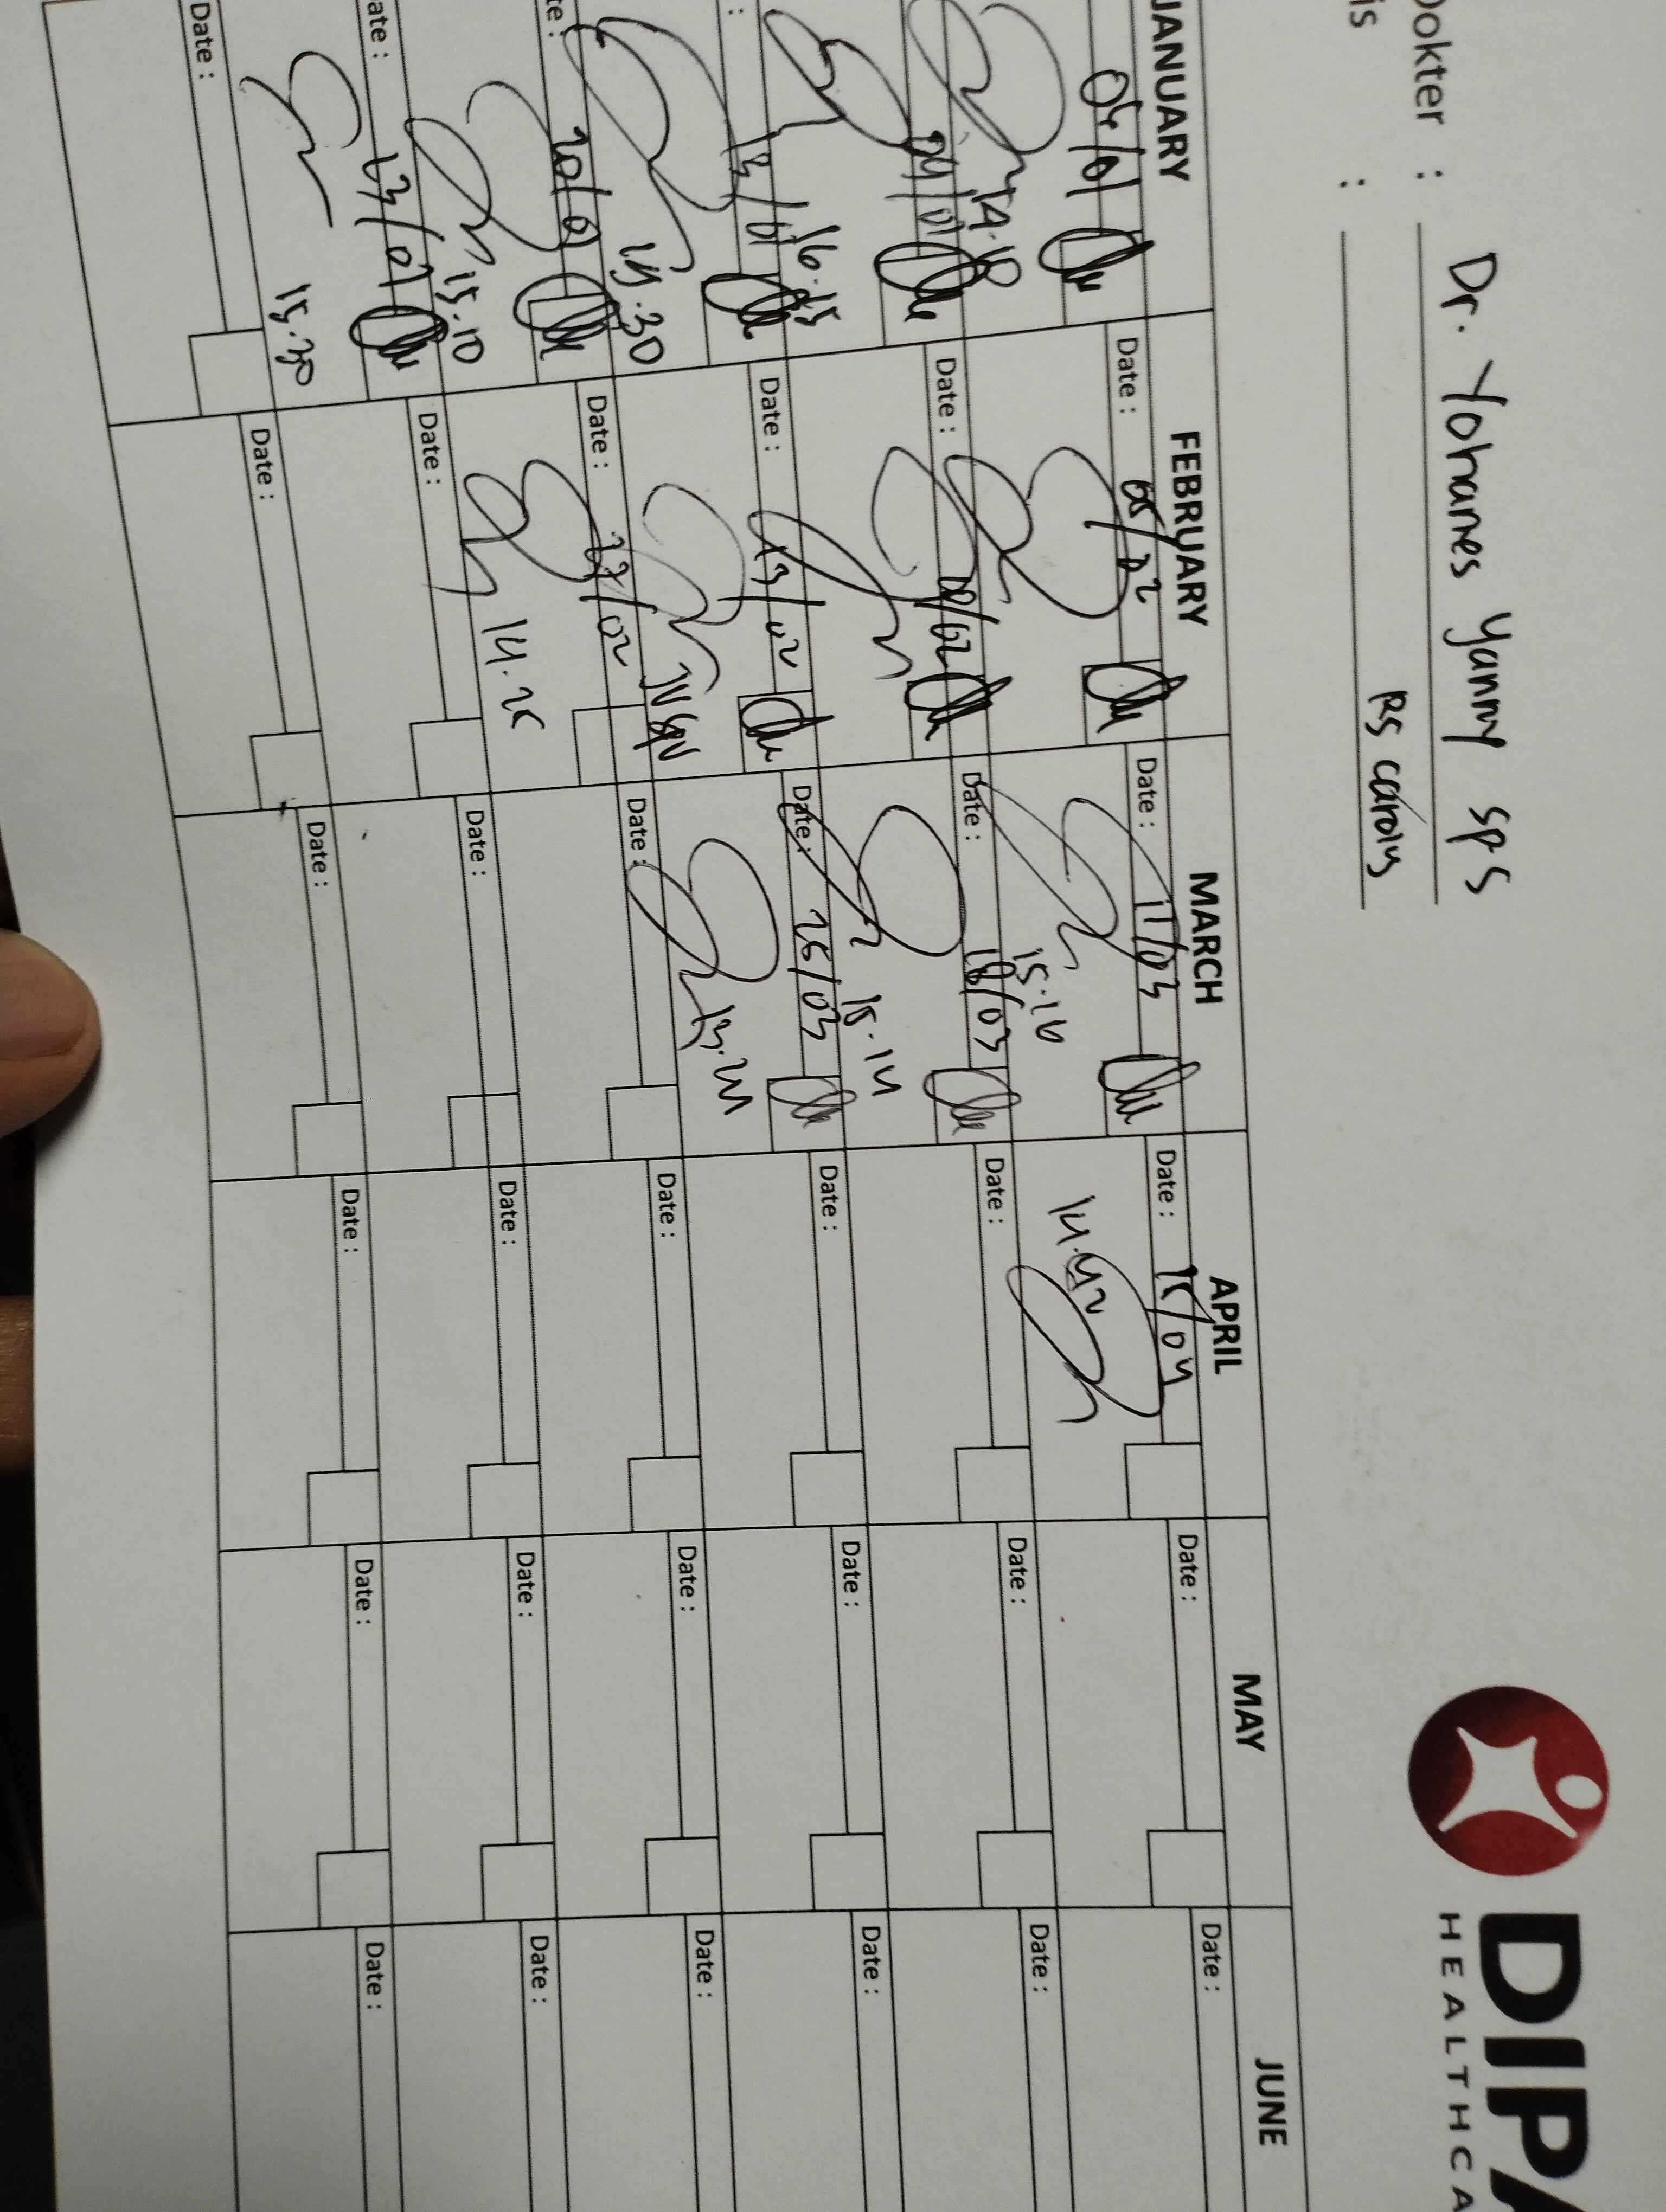 DIPA
HEALTHCA
Dokter : Dr. Yohanes Yanny SpS
is : RS Carolus
JANUARY FEBRUARY MARCH APRIL MAY JUNE
04/01 Date : 05/02 Date : 11/03 Date : 15/04 Date : Date :
14.10 15.16 14.42
09/01 Date : 10/02 Date : 18/03 Date : Date : Date :
16.15 15.14
: 13/01 Date : 13/02 Date : 26/03 Date : Date : Date :
15.30 13.24
te : 20/01 Date : 27/02 Date : Date : Date : Date :
15.10 14.25
ate : 23/01 Date : Date : Date : Date : Date :
15.30
Date : Date : Date : Date : Date : Date :